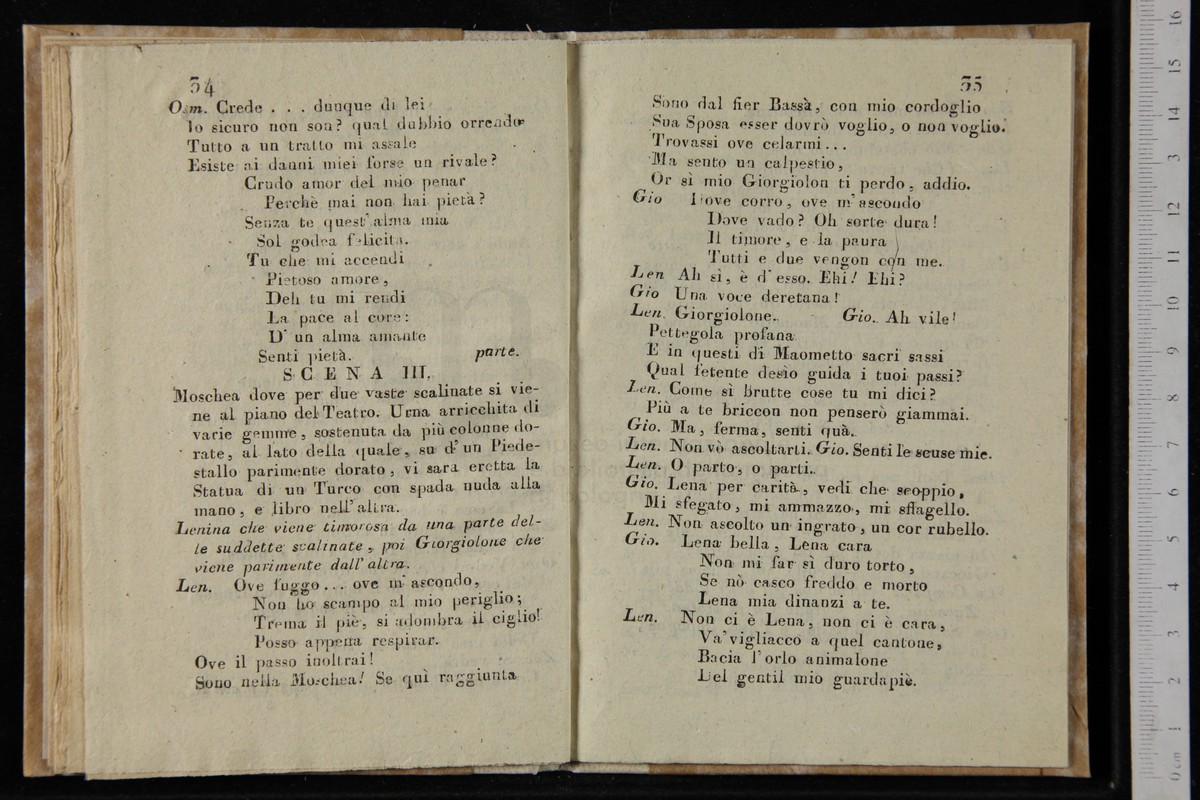 34
Osm. Crede . . . dunque di lei
Io sicuro non son? qual dubbio orrendo
Tutto a un tratto mi assale
Esiste ai danni miei forse un rivale?
Crudo amor del mio penar
Perchè mai non hai pietà?
Senza te quest' alma mia
Sol godea felicità.
Tu che mi accendi
Pietoso amore,
Deh tu mi rendi
La pace al core:
D' un alma amante
Senti pietà. parte.
SCENA III.
Moschea dove per due vaste scalinate si vie-
ne al piano del Teatro. Urna arricchita di
varie gemme, sostenuta da più colonne do-
rate, al lato della quale, su d' un Piede-
stallo parimente dorato, vi sarà eretta la
Statua di un Turco con spada nuda alla
mano, e libro nell' altra.
Lenina che viene timorosa da una parte del-
le suddette scalinate, poi Giorgiolone che
viene parimente dall' altra.
Len. Ove fuggo... ove m' ascondo,
Non ho scampo al mio periglio;
Trema il piè, si adombra il ciglio!
Posso appena respirar.
Ove il passo inoltrai!
Sono nella Moschea! Se quì raggiunta
35
Sono dal fier Bassà, con mio cordoglio
Sua Sposa esser dovrò voglio, o non voglio.
Trovassi ove celarmi...
Ma sento un calpestio,
Or sì mio Giorgiolon ti perdo, addio.
Gio Dove corro, ove m' ascondo
Dove vado? Oh sorte dura!
Il timore, e la paura
Tutti e due vengon con me.
Len Ah sì, è d' esso. Ehi! Ehi?
Gio Una voce deretana!
Len. Giorgiolone. Gio. Ah vile!
Pettegola profana
E in questi di Maometto sacri sassi
Qual fetente desìo guida i tuoi passi?
Len. Come sì brutte cose tu mi dici?
Più a te briccon non penserò giammai.
Gio. Ma, ferma, senti quà.
Len. Non vò ascoltarti. Gio. Senti le scuse mie.
Len. O parto, o parti.
Gio. Lena per carità, vedi che scoppio,
Mi sfegato, mi ammazzo, mi sflagello.
Len. Non ascolto un ingrato, un cor rubello.
Gio. Lena bella, Lena cara
Non mi far sì duro torto,
Se nò casco freddo e morto
Lena mia dinanzi a te.
Len. Non ci è Lena, non ci è cara,
Va' vigliacco a quel cantone,
Bacia l' orlo animalone
Del gentil mio guardapiè.